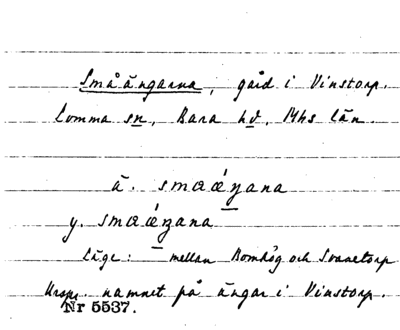 Småängarna, gård i Vinstorp.
Lomma sn, Bara hd, Mhs län.
ä. smaǽŋana
y. smaǽŋana
Läge: mellan Bomhög och Svanetorp
Urspr. namnet på ängar i Vinstorp.
Nr 5537.